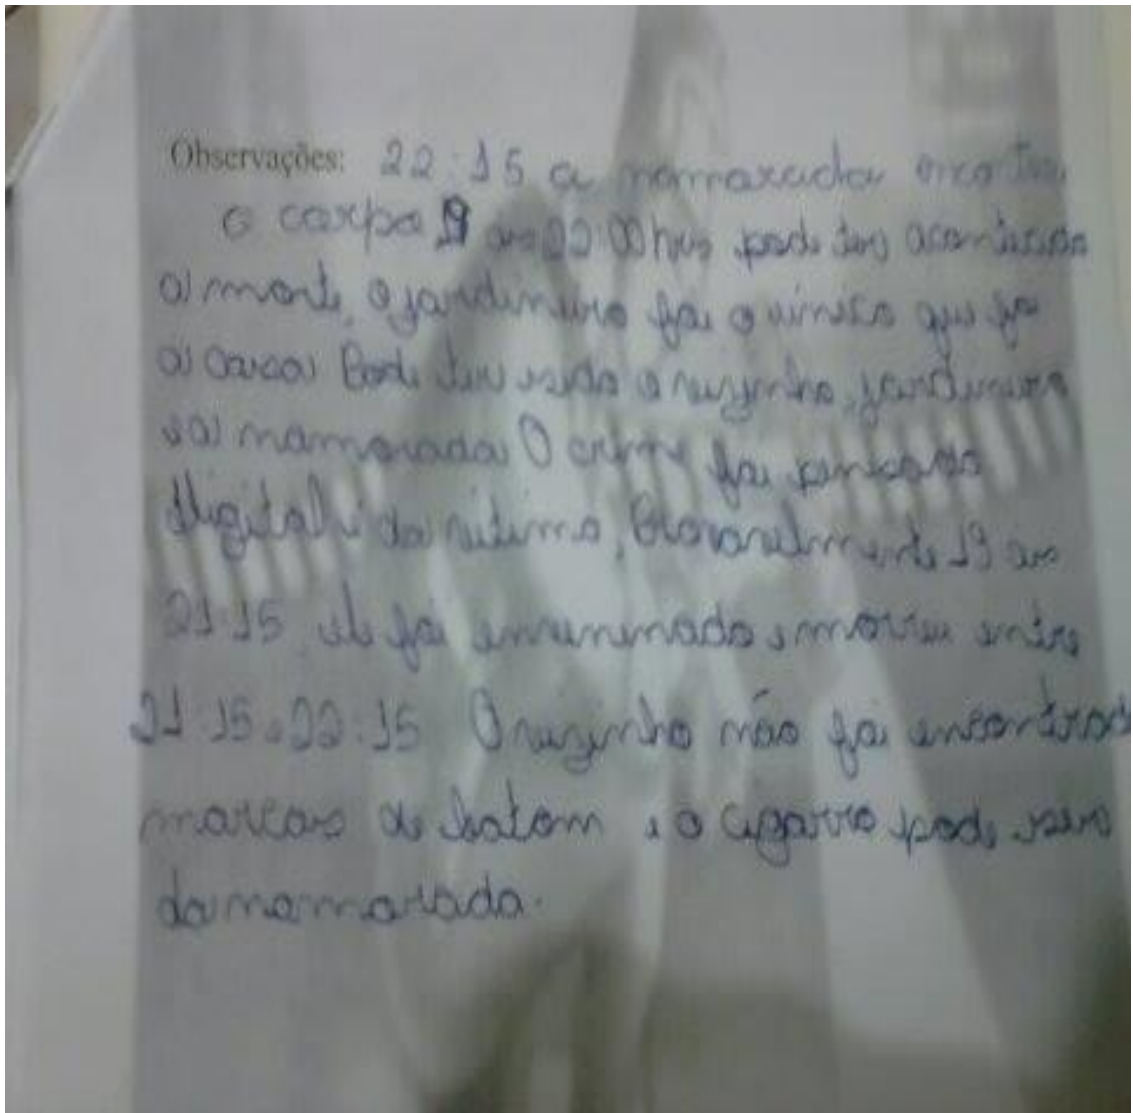 Observações: 22:15 a namorada encontra
o corpo as 22:00 hrs pode ter acontecido
a morte, o jardineiro foi o unico que foi
a casa Pode ter sido o vizinho, jardineiro
a namorada O crime foi pensado
digital é da vitima, Provavelmente 19 as
21:15 ele foi envenenado e morreu entre
21:15 22:15 O vizinho não foi encontrado
marcas de batom e o cigarro pode ser
da namorada.